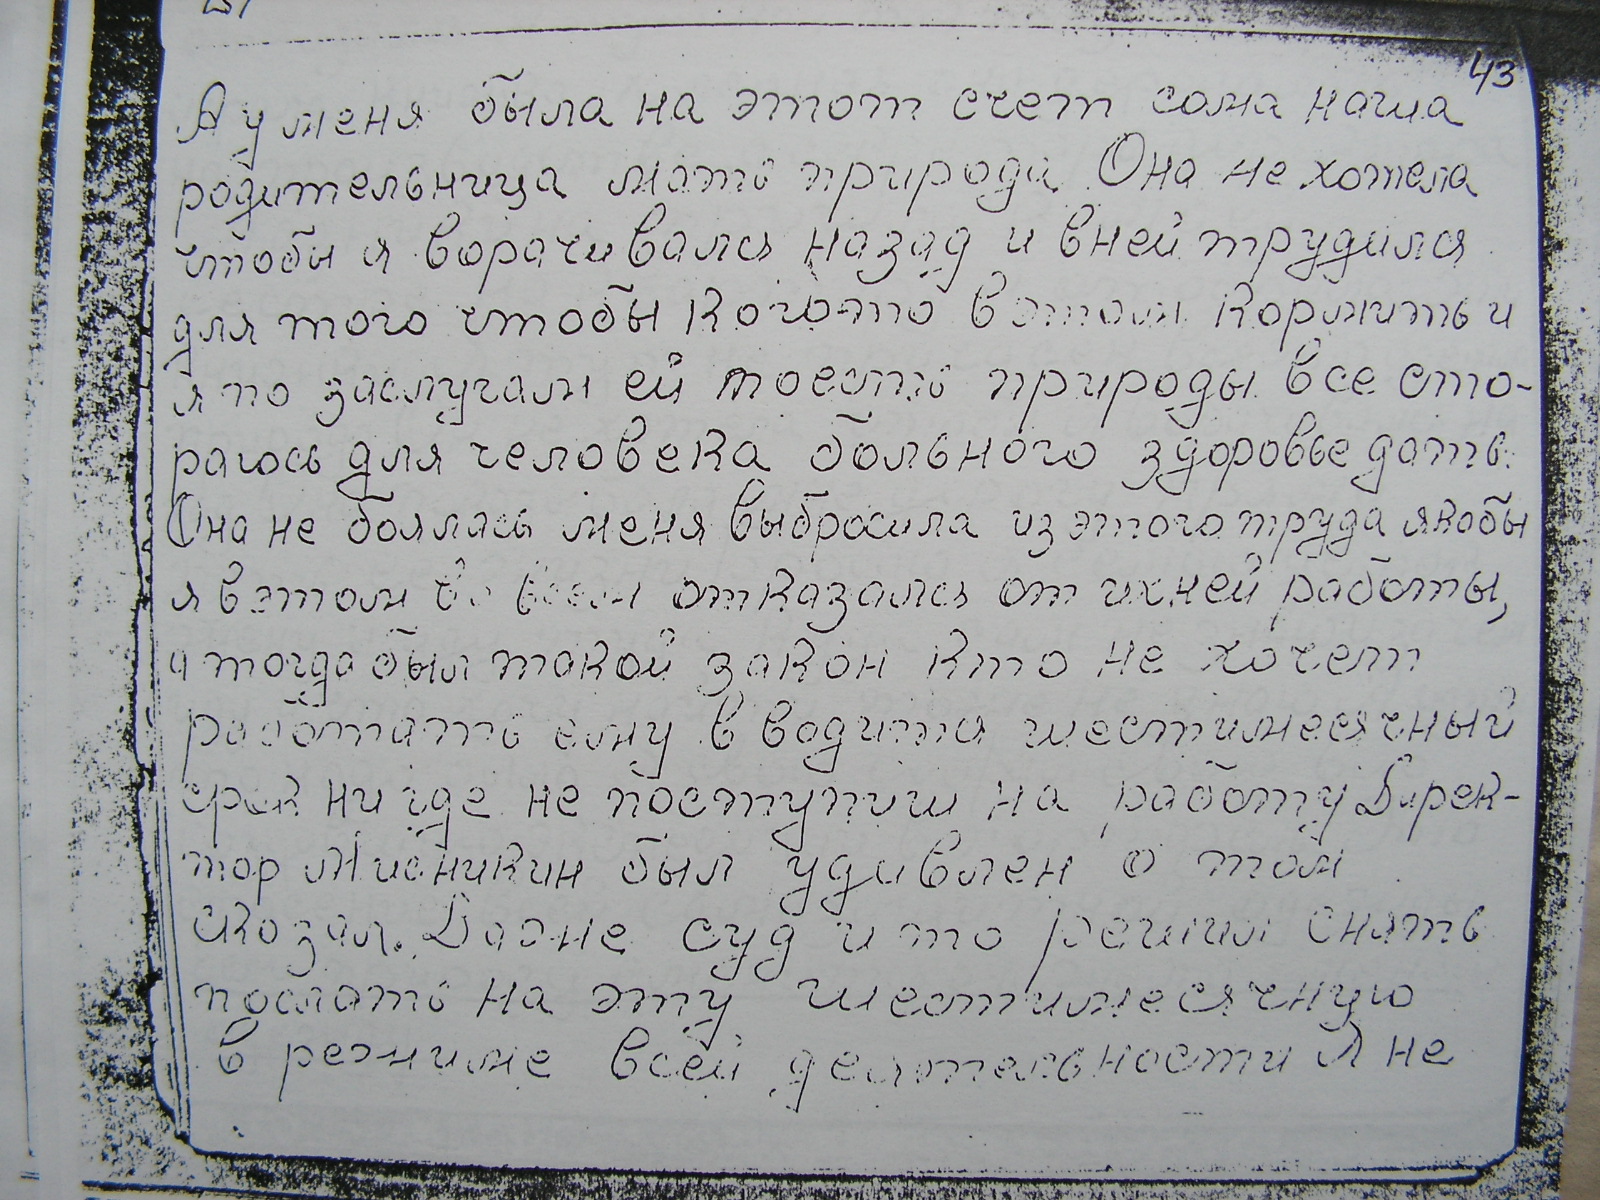 43
А у меня была на этот счет сама наша
родительница мать природа Она не хотела
чтобы я ворачивался назад и в ней трудился
для того чтобы кого-то в этом кормить и
я по заслугам ей тоесть природы все ста-
раюсь для человека больного здоровье дать.
Она не боялась меня выбросила из этого труда якобы
я в этом во всем отказался от ихней работы,
а тогда был такой закон кто не хочет
работать ему вводится шестимесячный
срок ни где не поступиш на работу Дирек-
тор был удивлен о том
сказал. Даже суд и то решил снять
послать на эту шестимесячную
в режиме всей деятельности Я не